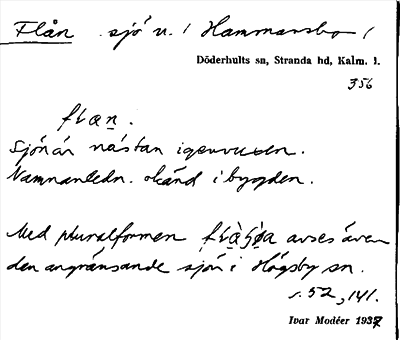 Flån sjö n. i Hammarsbo /
Döderhults sn, Stranda hd, Kalm. l.
356
flan.
Sjön är nästan igenvuxen.
Namnanledn. okänd i bygden.
Med pluralformen avses även
den angränsande sjön i Högsby sn.
s. 52, 141.
Ivar Modéer 1937